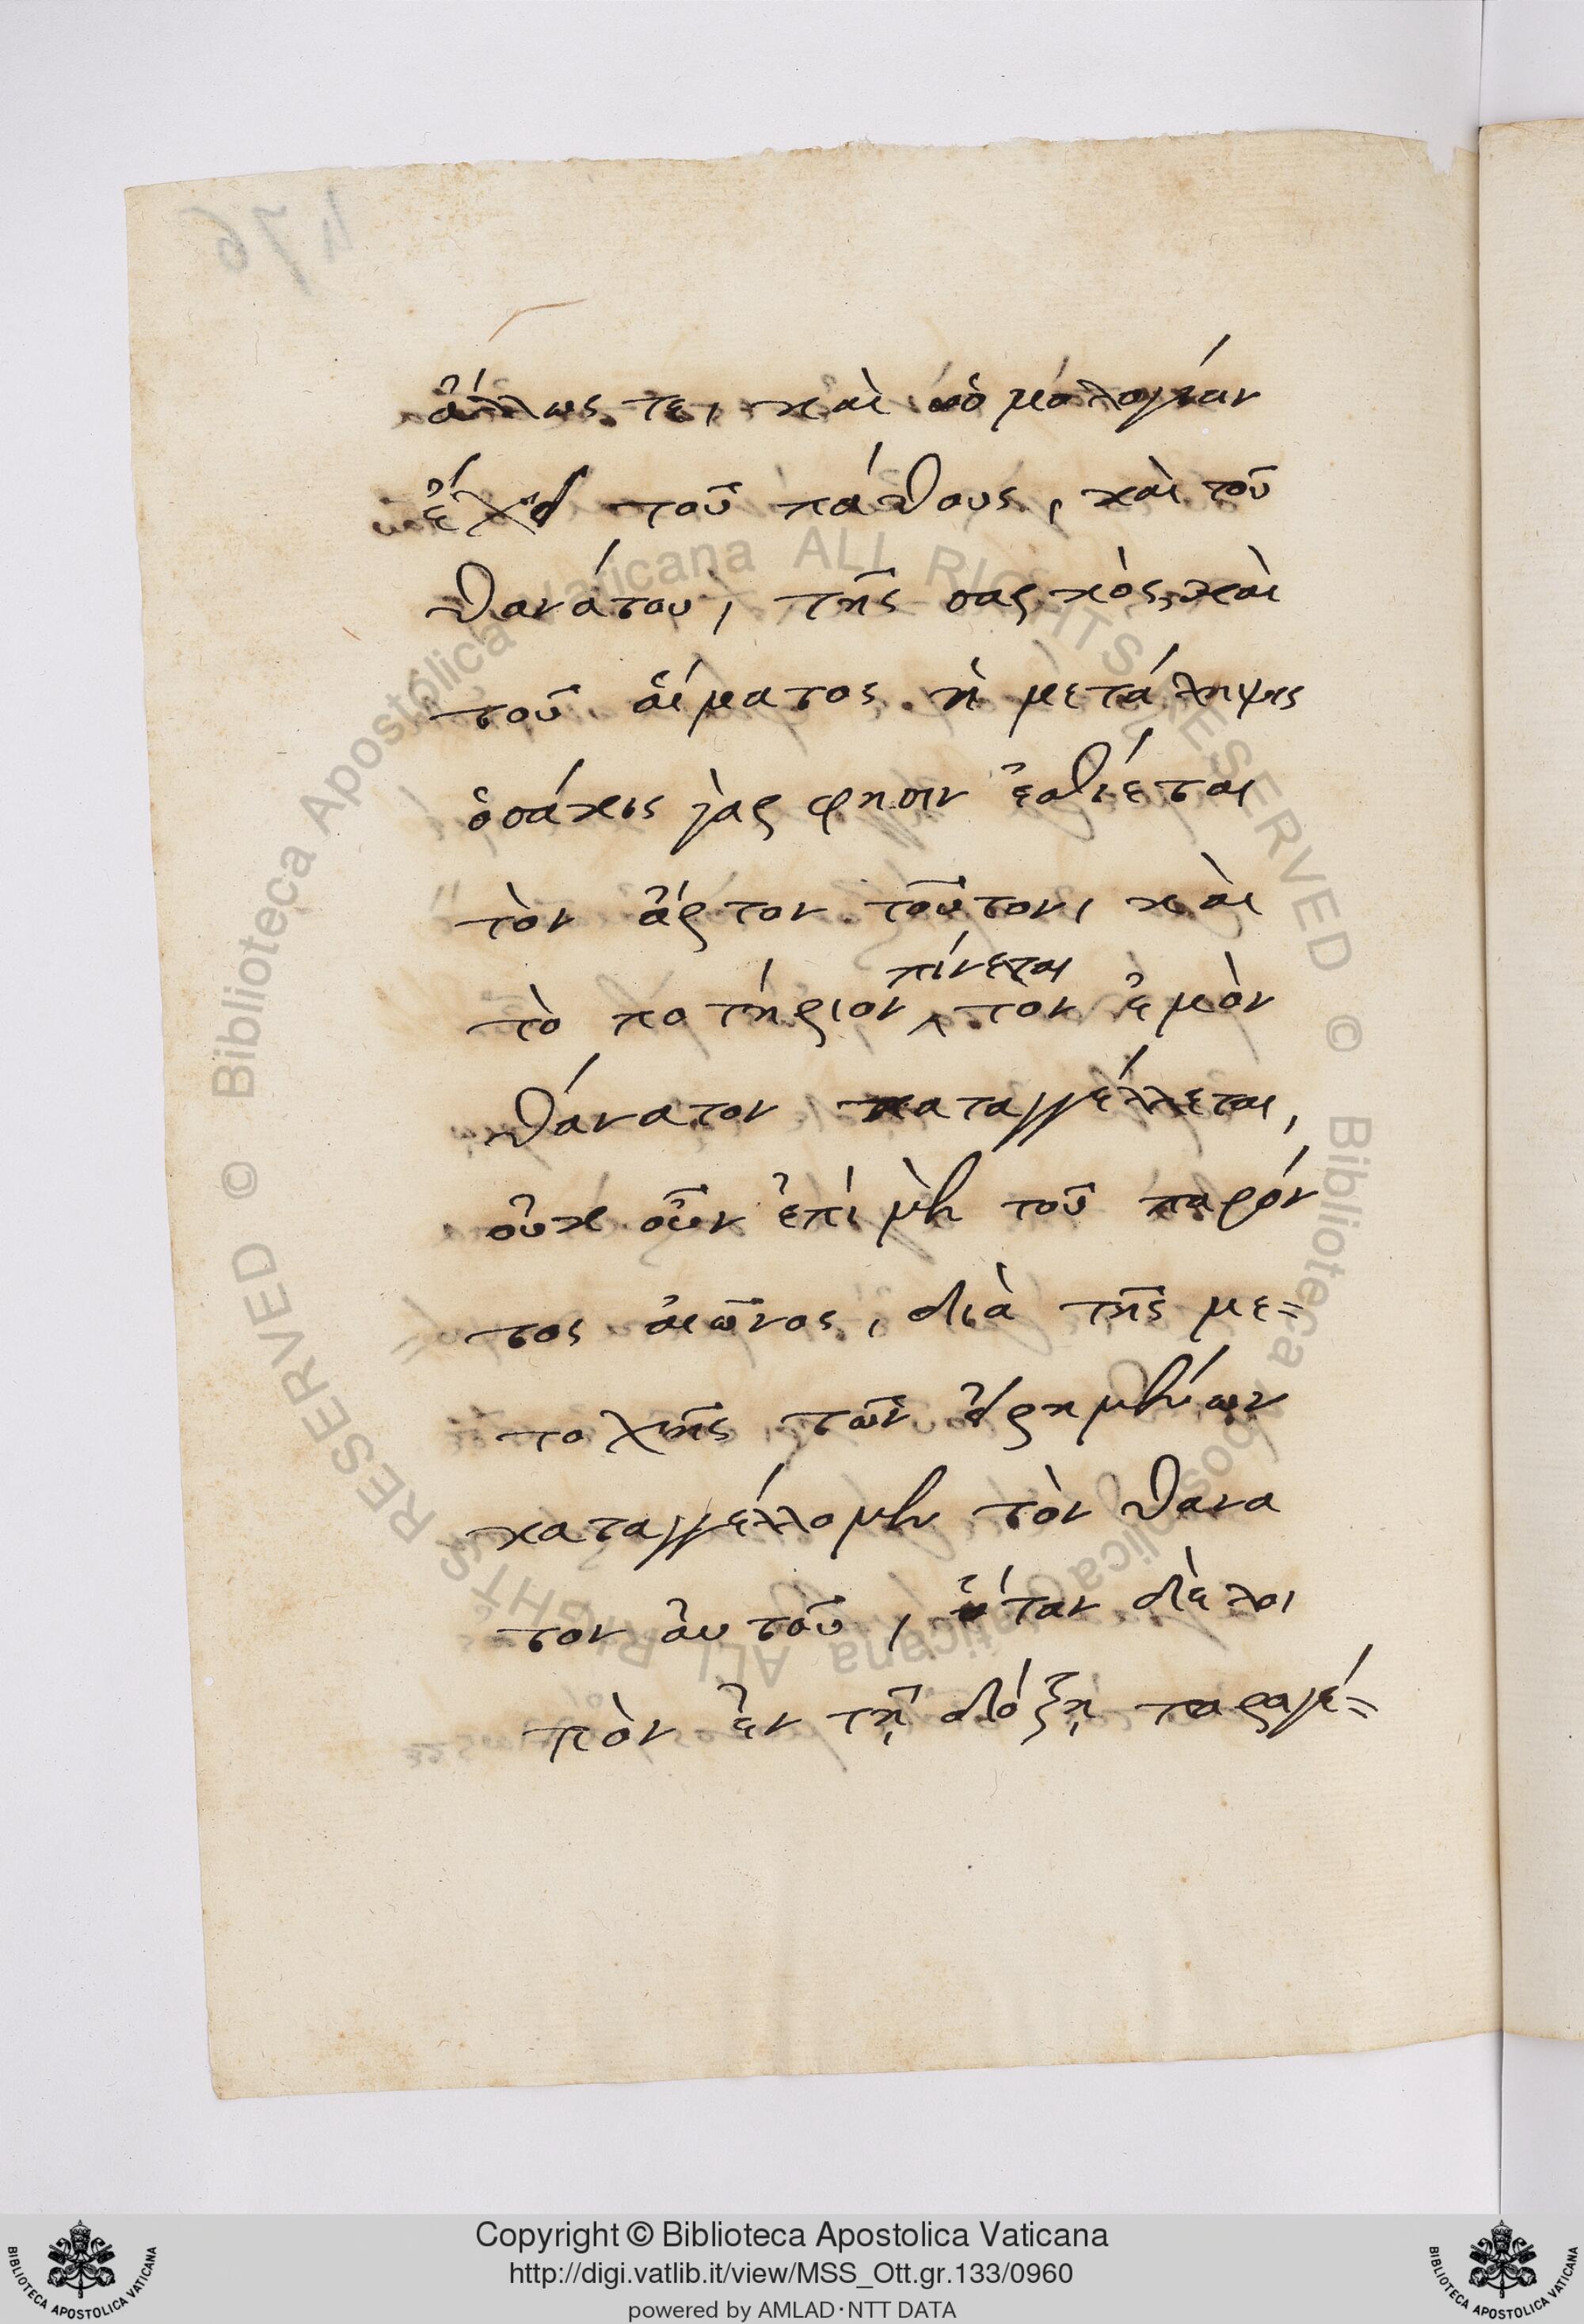 ἄλλως τε, καὶ ὁμολογίαν
ἔχει τοῦ πάθους, καὶ τοῦ
θανάτου, τῆς σαρκὸς, καὶ
τοῦ αἵματος ἡ μετάληψις
ὁσάκις γὰρ φησιν ἐσθίεται
τὸν ἄρτον τοῦτον, καὶ
πίνεται
τὸ ποτήριον ‸ τὸν ἐμὸν
θάνατον καταγγέλλεται,
οὐκ οὖν ἐπὶ μὲν τοῦ παρόν
τος αἰῶνος, διὰ τῆς με=
τοχῆς τῶν εἰρημένων
καταγγέλλομεν τὸν θανα
τον αὐτοῦ, ὅταν δὲ λοι
πὸν ἐν τῇ δόξῃ παραγέ=
Copyright © Biblioteca Apostolica Vaticana
http://digi.vatlib.it/view/MSS_Ott.gr.133/0960
powered by AMLAD·NTT DATA
BIBLIOTECA APOSTOLICA VATICANA
BIBLIOTECA APOSTOLICA VATICANA
© Biblioteca Apostolica Vaticana ALL RIGHTS RESERVED
© Biblioteca Apostolica Vaticana ALL RIGHTS RESERVED